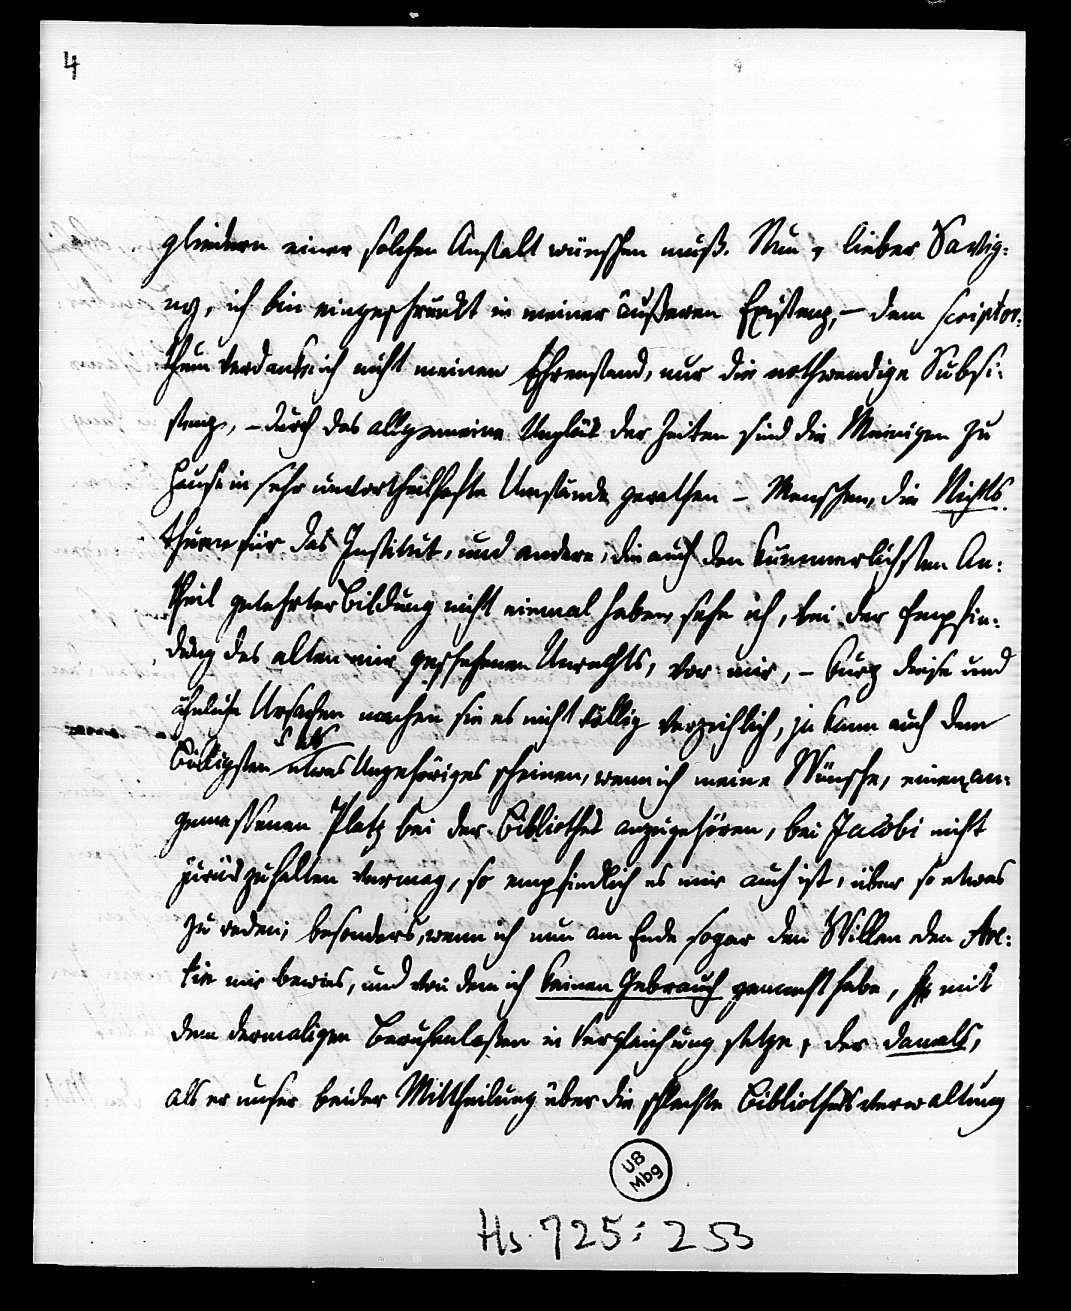 4
gliedern einer solchen Anstalt wünschen muß. Nun, lieber Savig-
ny, ich bin eingeschränkt in meiner äußeren Existenz, – dem Scriptor-
thum verdanke ich nicht meinen Ehrenstand, nur die nothwendige Subsi-
stenz, – durch das allgemeine Unglük der Zeiten sind die Meinigen zu
Hause in sehr unvortheilhafte Umstände gerathen – Menschen, die Nichts
thun für das Institut, und andere, die auch den kümmerlichsten An-
theil gelehrter Bildung nicht einmal haben, sehe ich, bei der Empfin-
dung des alten mir geschehenen Unrechts, vor mir, – kurz diese und
ähnliche Ursachen machen sie es nicht völlig verzeihlich, ja kann auch dem
Billigsten es als etwas Ungehöriges scheinen, wenn ich meine Wünsche, einen an-
gemessenen Platz bei der Bibliothek anzugehören, bei Jacobi nicht
zurükzuhalten vermag, so empfindlich es mir auch ist, über so etwas
zu reden; besonders, wenn ich nun am Ende sogar den Willen den
mir bewies, und von dem ich keinen Gebrauch gemacht habe, mit
dem dermaligen Beruhenlassen in Vergleichung setze, der damals,
als er unser beider Mittheilung über die schlechte Bibliotheksverwaltung
UB
Mbg
Hs. 725: 253